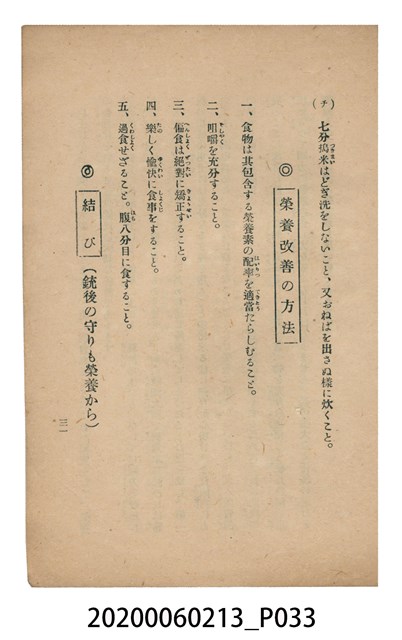 (チ) 七分搗米はとぎ洗をしないこと、又おねばを出さぬ樣に炊くこと。
◎ 榮養改善の方法
一、食物は其包含する榮養素の配率を適當たらしむること。
二、咀嚼を充分すること。
三、偏食は絕對に矯正すること。
四、樂しく愉快に食事をすること。
五、過食せざること。腹八分目に食すること。
◎ 結び (銃後の守りも榮養から)
三一
20200060213_P033